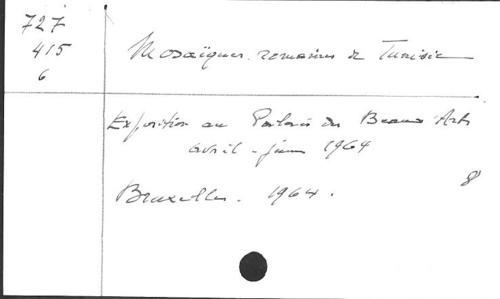 727
415
6
Mosaïques romaines de Tunisie
Exposition au Palais des Beaux Arts
avril - juin 1964
Bruxelles. 1964.
8°